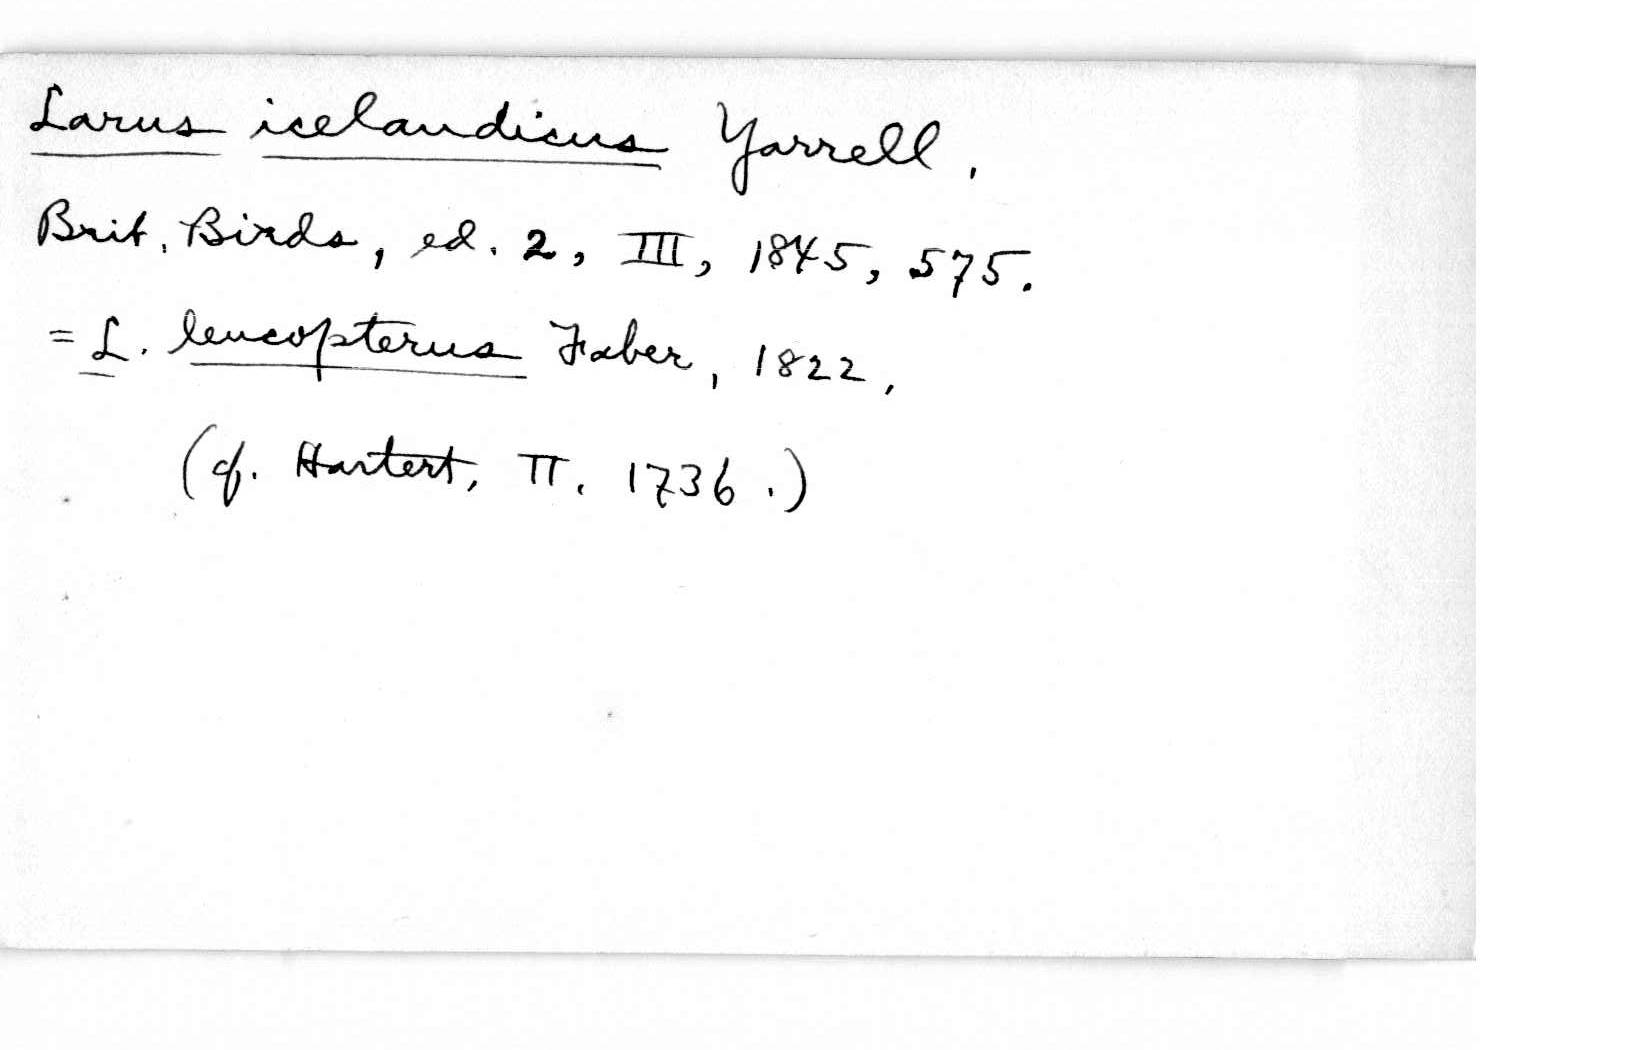 Larus icelandicus Yarrell,
Brit. Birds, ed. 2, III, 1845, 575.
= L. leucopterus Faber, 1822,
(cf. Hartert, II. 1736.)